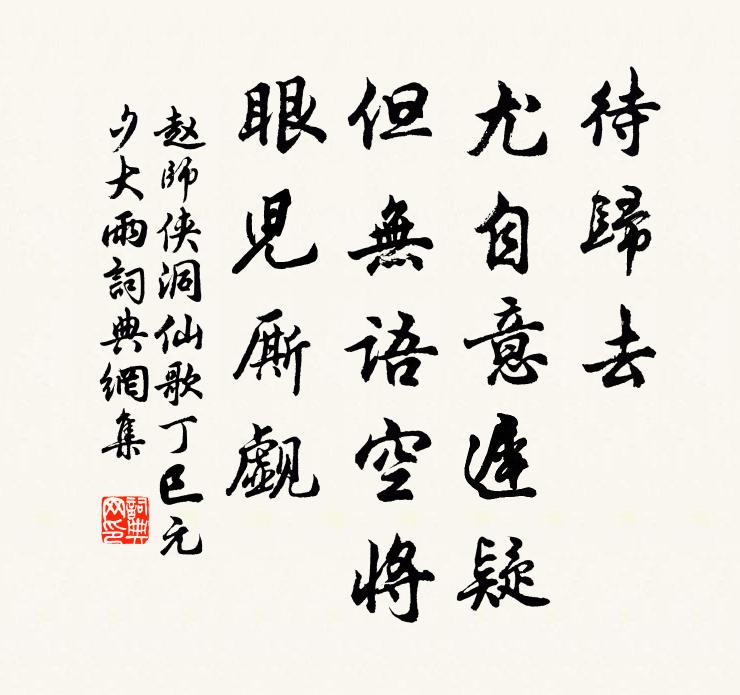 待歸去
尤自意遲疑
但無語空將
眼兒厮覷
赵師俠洞仙歌丁巳元
夕大雨詞典網集
詞典网印